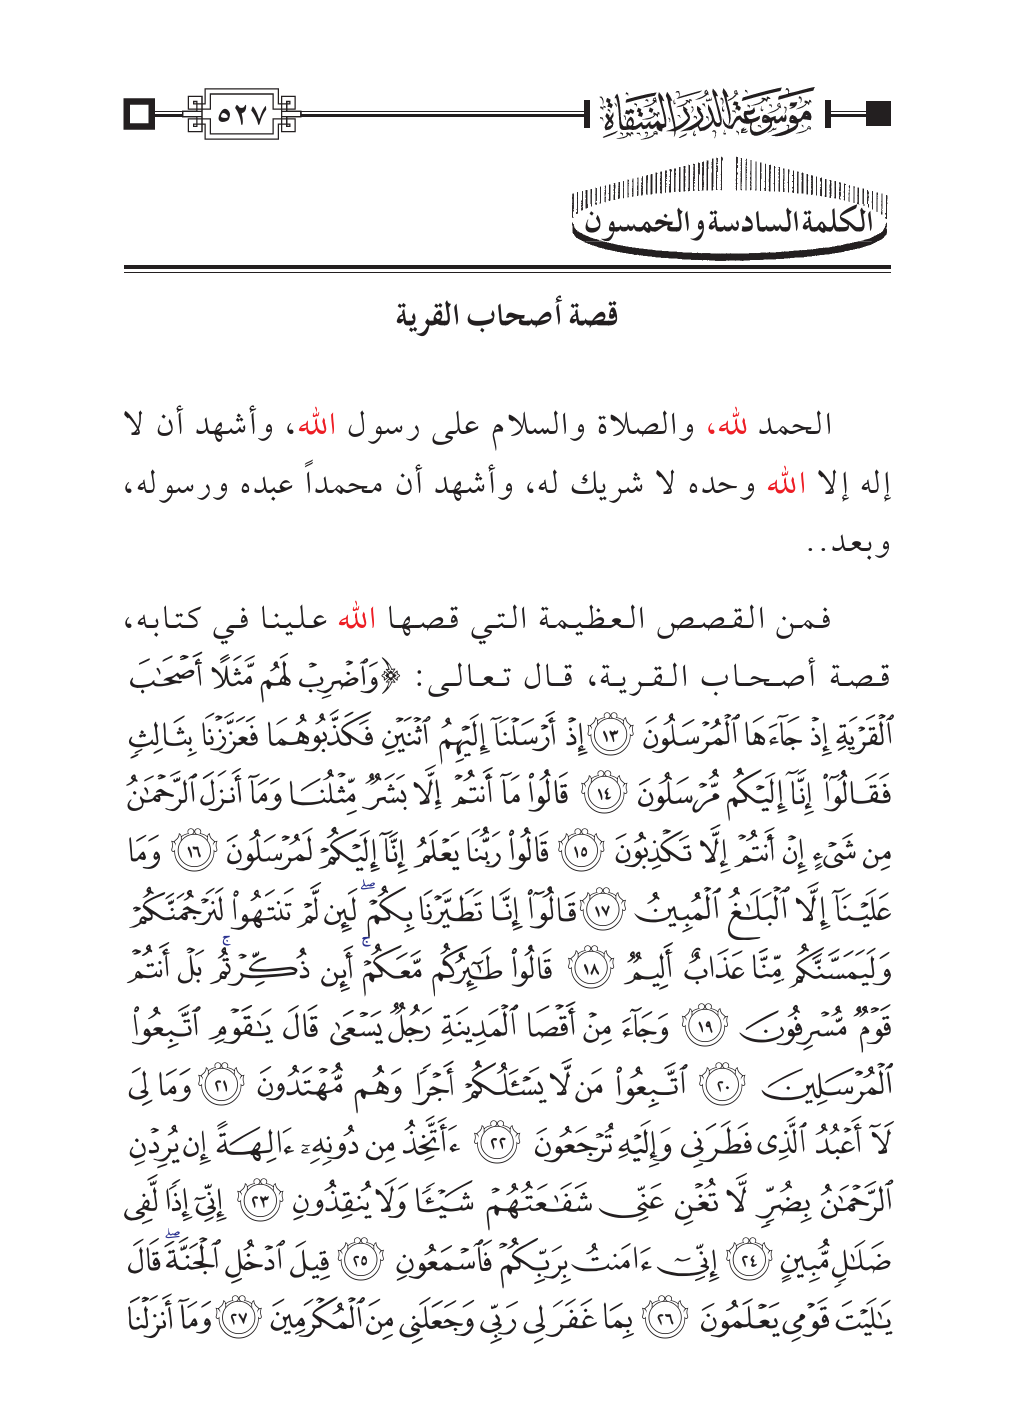 مَوْسُوعَةُ الدُّرَرِ الْمُنْتَقَاةِ
٥٢٧
الكلمة السادسة والخمسون
قصة أصحاب القرية
الحمد لله، والصلاة والسلام على رسول الله، وأشهد أن لا
إله إلا الله وحده لا شريك له، وأشهد أن محمداً عبده ورسوله،
وبعد..
فمن القصص العظيمة التي قصها الله علينا في كتابه،
قصة أصحاب القرية، قال تعالى: ﴿وَٱضۡرِبۡ لَهُم مَّثَلًا أَصۡحَٰبَ
ٱلۡقَرۡيَةِ إِذۡ جَآءَهَا ٱلۡمُرۡسَلُونَ ١٣ إِذۡ أَرۡسَلۡنَآ إِلَيۡهِمُ ٱثۡنَيۡنِ فَكَذَّبُوهُمَا فَعَزَّزۡنَا بِثَالِثٖ
فَقَالُوٓاْ إِنَّآ إِلَيۡكُم مُّرۡسَلُونَ ١٤ قَالُواْ مَآ أَنتُمۡ إِلَّا بَشَرٞ مِّثۡلُنَا وَمَآ أَنزَلَ ٱلرَّحۡمَٰنُ
مِن شَيۡءٍ إِنۡ أَنتُمۡ إِلَّا تَكۡذِبُونَ ١٥ قَالُواْ رَبُّنَا يَعۡلَمُ إِنَّآ إِلَيۡكُمۡ لَمُرۡسَلُونَ ١٦ وَمَا
عَلَيۡنَآ إِلَّا ٱلۡبَلَٰغُ ٱلۡمُبِينُ ١٧ قَالُوٓاْ إِنَّا تَطَيَّرۡنَا بِكُمۡۖ لَئِن لَّمۡ تَنتَهُواْ لَنَرۡجُمَنَّكُمۡ
وَلَيَمَسَّنَّكُم مِّنَّا عَذَابٌ أَلِيمٞ ١٨ قَالُواْ طَٰٓئِرُكُم مَّعَكُمۡۚ أَئِن ذُكِّرۡتُمۚ بَلۡ أَنتُمۡ
قَوۡمٞ مُّسۡرِفُونَ ١٩ وَجَآءَ مِنۡ أَقۡصَا ٱلۡمَدِينَةِ رَجُلٞ يَسۡعَىٰ قَالَ يَٰقَوۡمِ ٱتَّبِعُواْ
ٱلۡمُرۡسَلِينَ ٢٠ ٱتَّبِعُواْ مَن لَّا يَسۡـَٔلُكُمۡ أَجۡرٗا وَهُم مُّهۡتَدُونَ ٢١ وَمَا لِيَ
لَآ أَعۡبُدُ ٱلَّذِي فَطَرَنِي وَإِلَيۡهِ تُرۡجَعُونَ ٢٢ ءَأَتَّخِذُ مِن دُونِهِۦٓ ءَالِهَةً إِن يُرِدۡنِ
ٱلرَّحۡمَٰنُ بِضُرّٖ لَّا تُغۡنِ عَنِّي شَفَٰعَتُهُمۡ شَيۡـٔٗا وَلَا يُنقِذُونِ ٢٣ إِنِّيٓ إِذٗا لَّفِي
ضَلَٰلٖ مُّبِينٍ ٢٤ إِنِّيٓ ءَامَنتُ بِرَبِّكُمۡ فَٱسۡمَعُونِ ٢٥ قِيلَ ٱدۡخُلِ ٱلۡجَنَّةَۖ قَالَ
يَٰلَيۡتَ قَوۡمِي يَعۡلَمُونَ ٢٦ بِمَا غَفَرَ لِي رَبِّي وَجَعَلَنِي مِنَ ٱلۡمُكۡرَمِينَ ٢٧ وَمَآ أَنزَلۡنَا